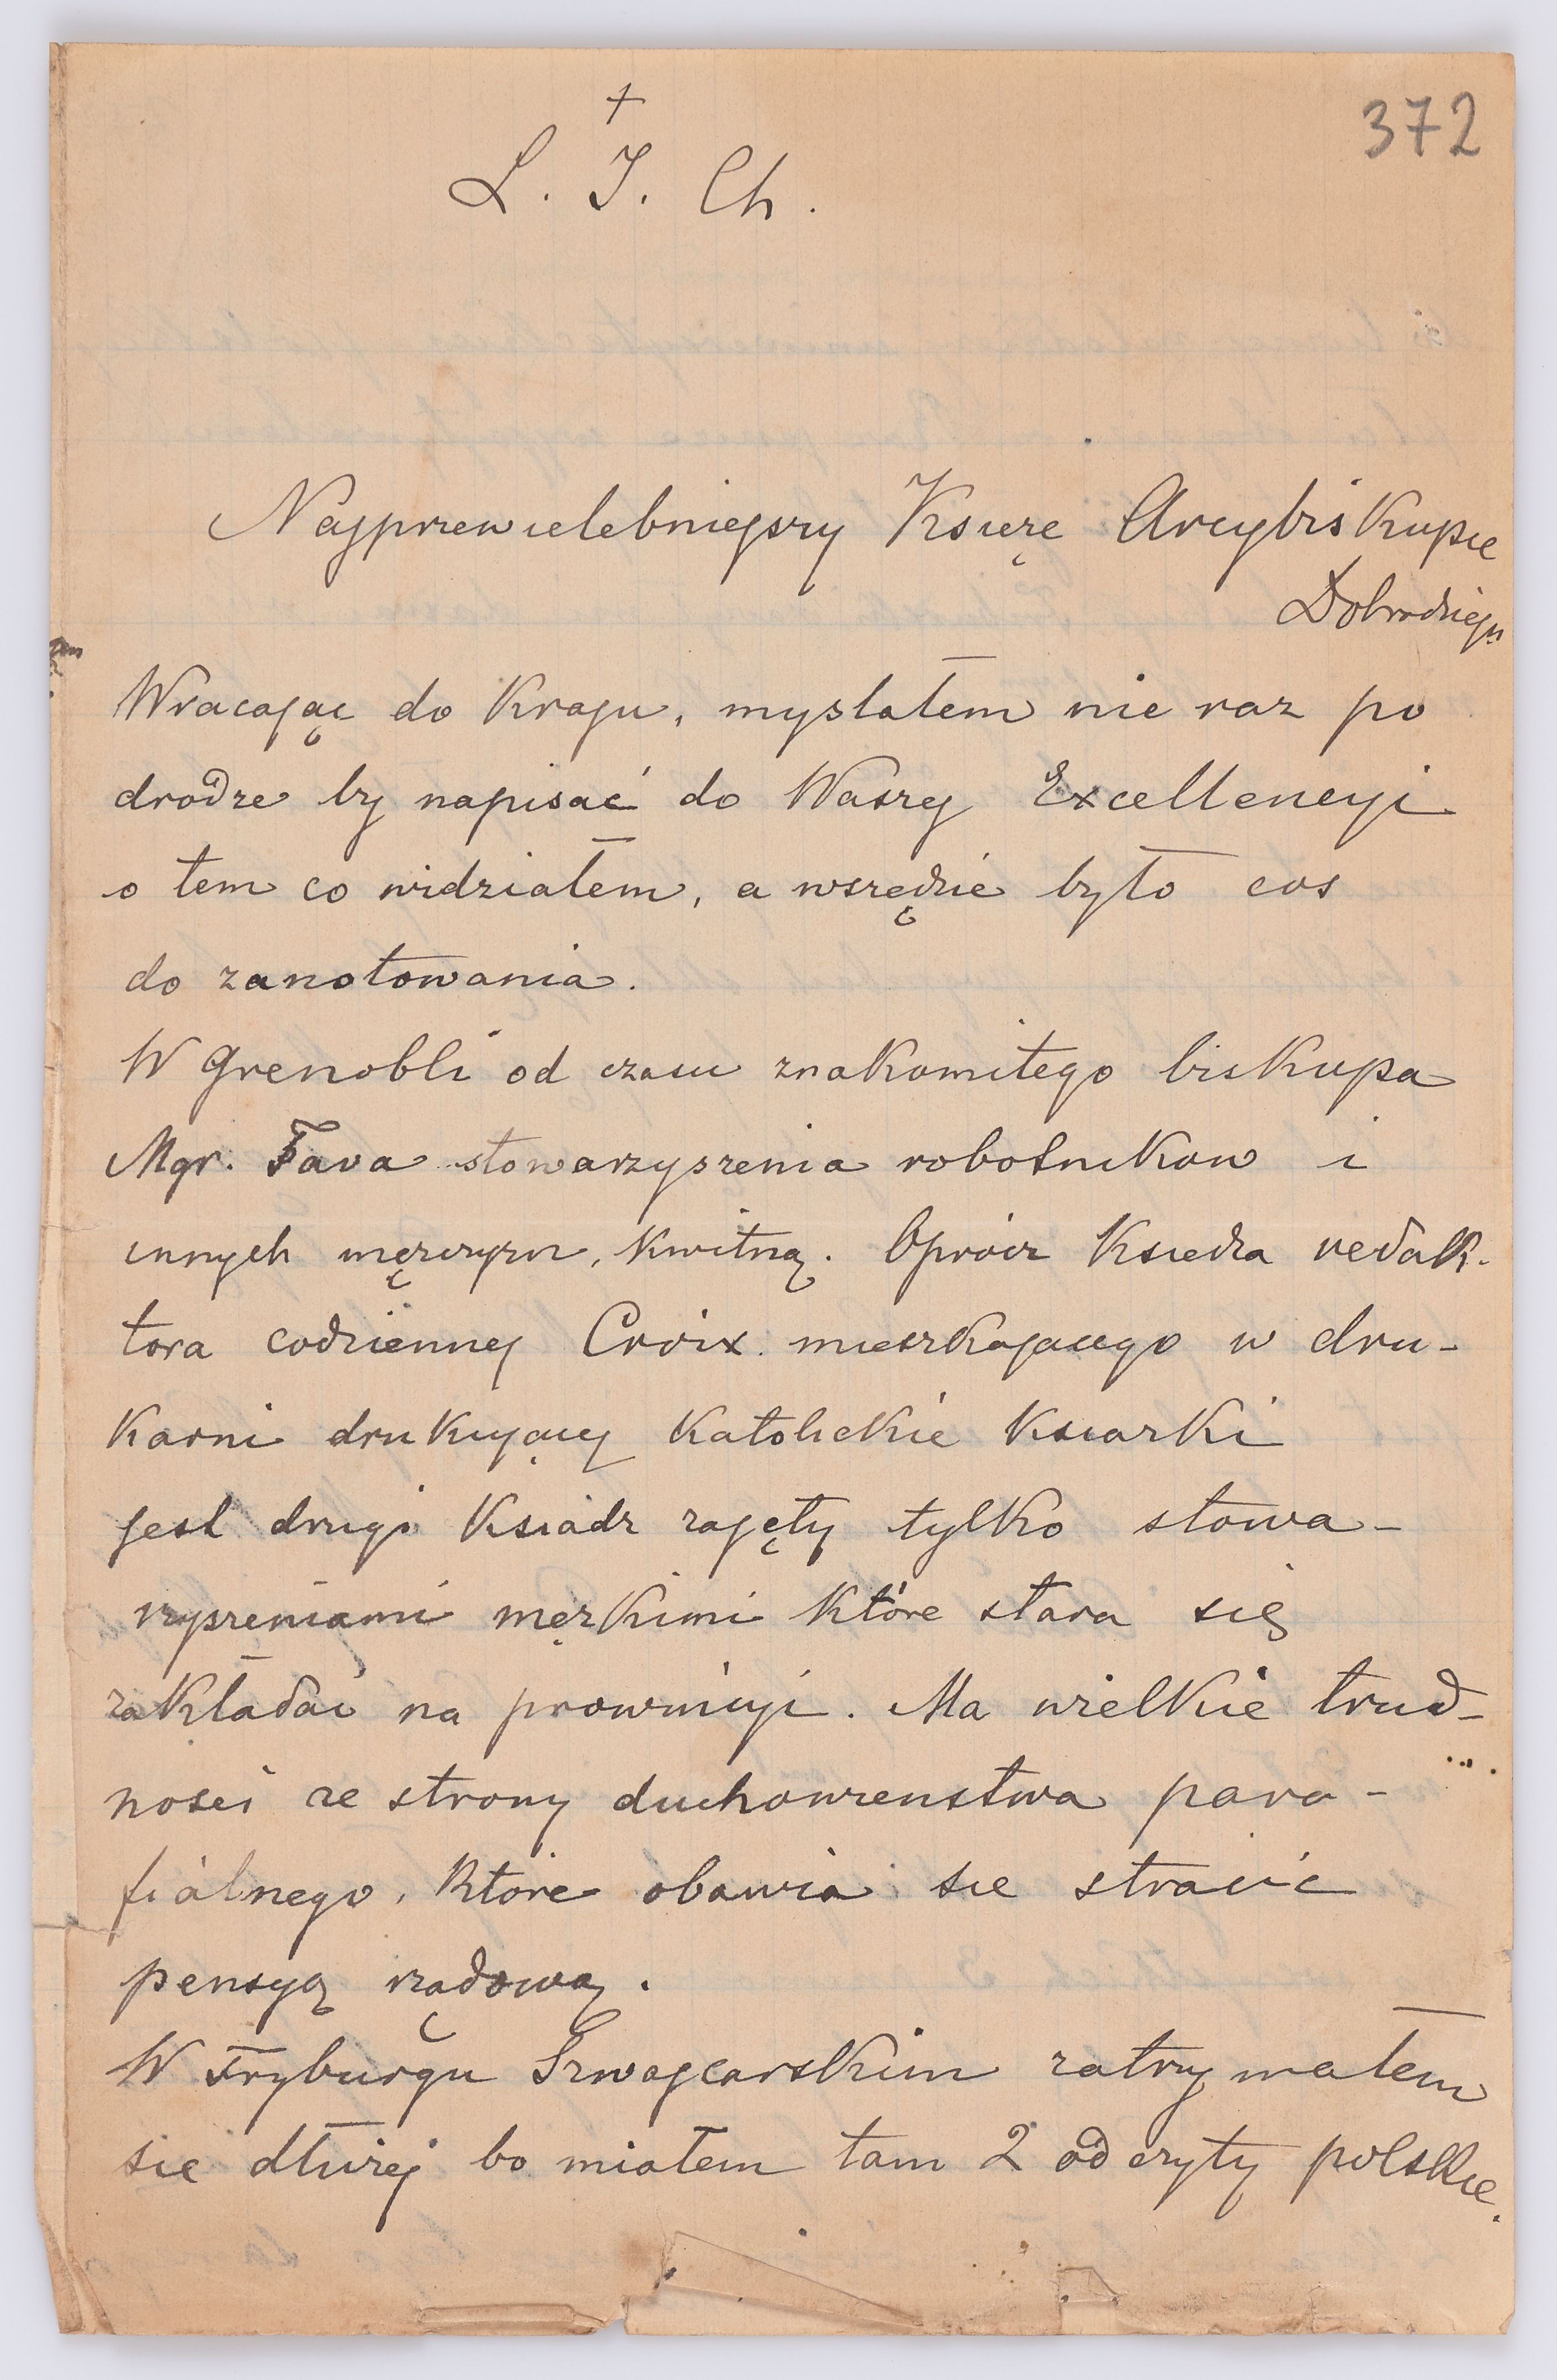 372
+
L. J. Ch.
Najprzewielebniejszy Księże Arcybiskupie
Dobrodzieju
Wracając do Kraju, myslałem nie raz po
drodze by napisać do Waszej Excellencyi
o tem co widziałem, a wszędzie było cos
do zanotowania.
W Grenobli od czasu znakomitego biskupa
Mgr. Fava stowarzyszenia robotnikow i
innych męzczyzn, kwitną. Oprócz Ksiedza redak-
tora codziennej Croix mieszkajacego w dru-
karni drukującej Katolickie Ksiazki
jest drugi Ksiadz zajęty tylko stowa-
rzyszeniami męzkimi które stara się
zakładać na prowincyi. Ma wielkie trud-
nosci ze strony duchowienstwa para-
fialnego, które obawia sie stracić
pensyą rządową.
W Fryburgu Szwajcarskim zatrzymałem
sie dłużej bo miałem tam 2 odczyty polskie.